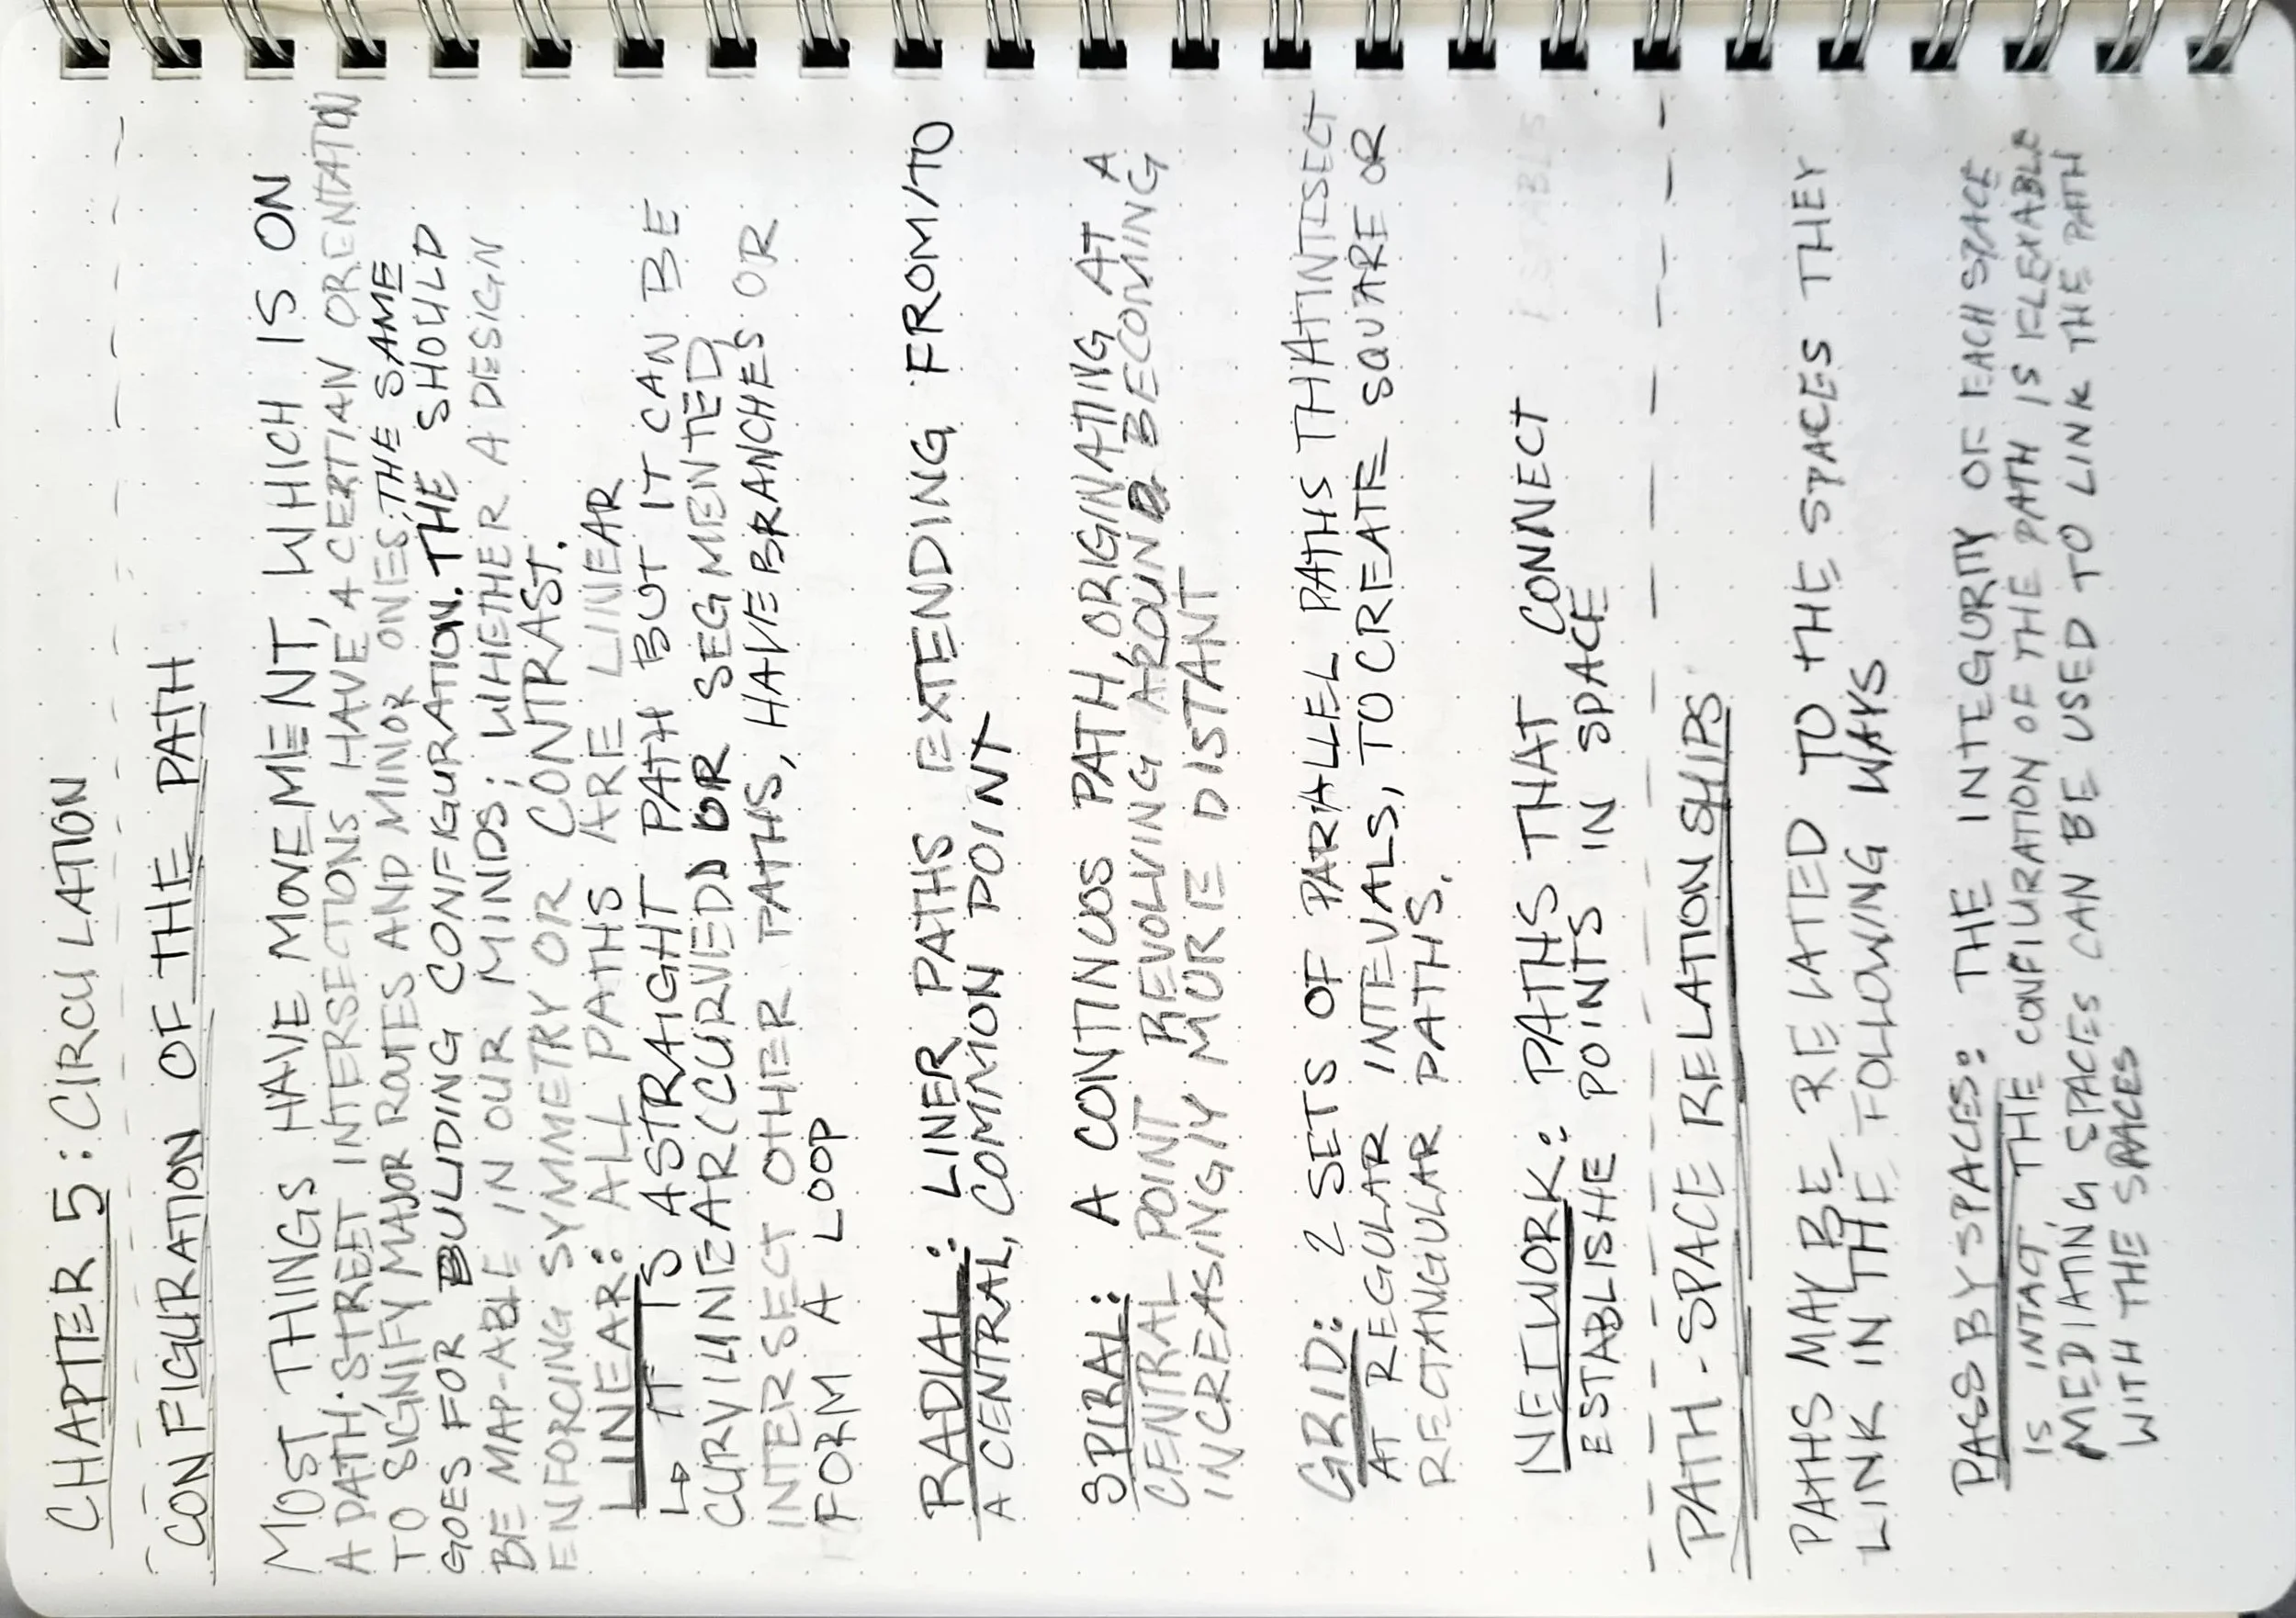 CHAPTER 5: CIRCULATION
CONFIGURATION OF THE PATH
MOST THINGS HAVE MOVEMENT, WHICH IS ON
A PATH. STREET INTERSECTIONS HAVE A CERTIAN ORENTATION
TO SIGNIFY MAJOR ROUTES AND MINOR ONES; THE SAME
GOES FOR BULIDING CONFIGURATION. THE SHOULD
BE MAP-ABLE IN OUR MINDS; WHETHER A DESIGN
ENFORCING SYMMETRY OR CONTRAST.
LINEAR: ALL PATHS ARE LINEAR
↳ IT IS A STRAIGHT PATH BUT IT CAN BE
CURVILINEAR (CURVED) OR SEGMENTED,
INTERSECT OTHER PATHS, HAVE BRANCHES OR
FORM A LOOP
RADIAL: LINER PATHS EXTENDING FROM/TO
A CENTRAL, COMMON POINT
SPIRAL: A CONTINUOS PATH, ORIGINATING AT A
CENTRAL POINT REVOLVING AROUND BECOMING
INCREASINGLY MORE DISTANT
GRID: 2 SETS OF PARALLEL PATHS THAT INTISECT
AT REGULAR INTEVALS, TO CREATE SQUARE OR
RECTANGULAR PATHS.
NETWORK: PATHS THAT CONNECT
ESTABLISHE POINTS IN SPACE
PATH-SPACE RELATIONSHIPS
PATHS MAY BE RELATED TO THE SPACES THEY
LINK IN THE FOLLOWING WAYS
PASS BY SPACES: THE INTEGURITY OF EACH SPACE
IS INTACT THE CONFIURATION OF THE PATH IS FLEXABLE
MEDIATING SPACES CAN BE USED TO LINK THE PATH
WITH THE SPACES